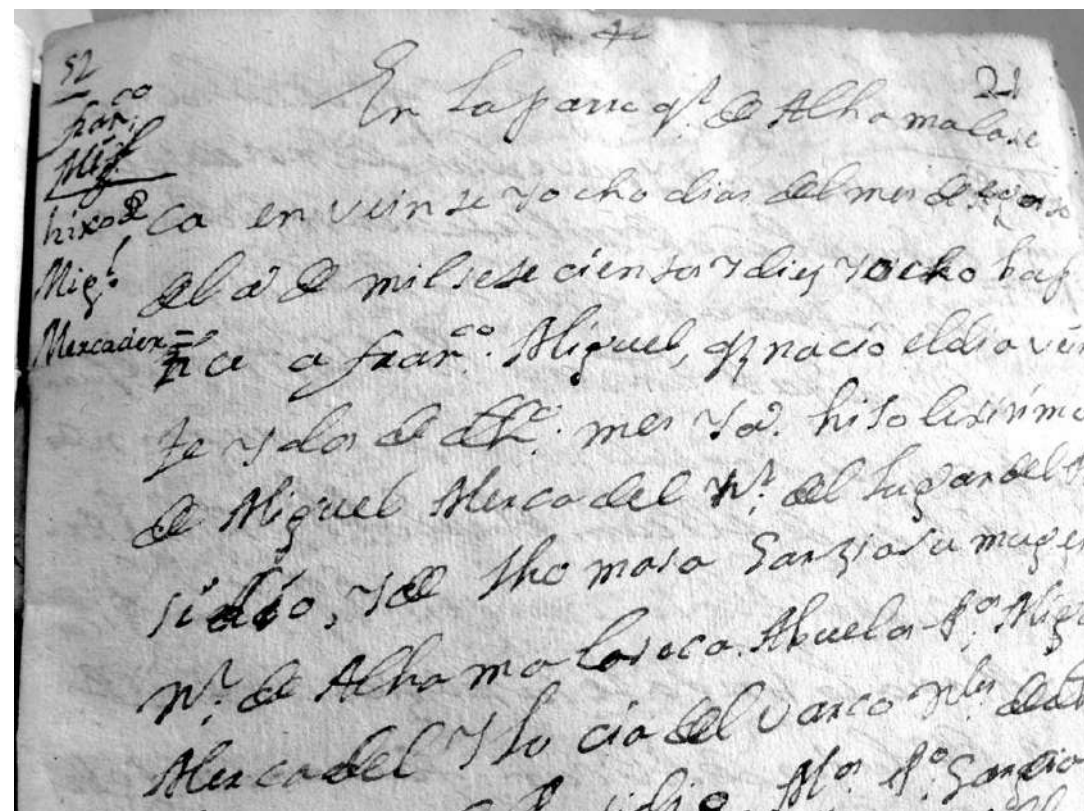 52
21
Fran.co
Mig.l
hixo de
Mig.l
Mercader =
En la parrq.l de Alhama la se
ca en veinte y ocho dias del mes de Agosto
del a.o de mil sete cientos y diez y ocho bap
tice a Fran.co Miguel, q nacio el dia vein
te y dos de dho mes y a.o hijo lexitimo
de Miguel Mercadel n.l del lugar del
y de Thomasa Garzia su muger
n.l de Alhama la seca. Abuelos P.os Mig
Mercadel y Lucia del Varco n.les del
M.os P.o Garzia